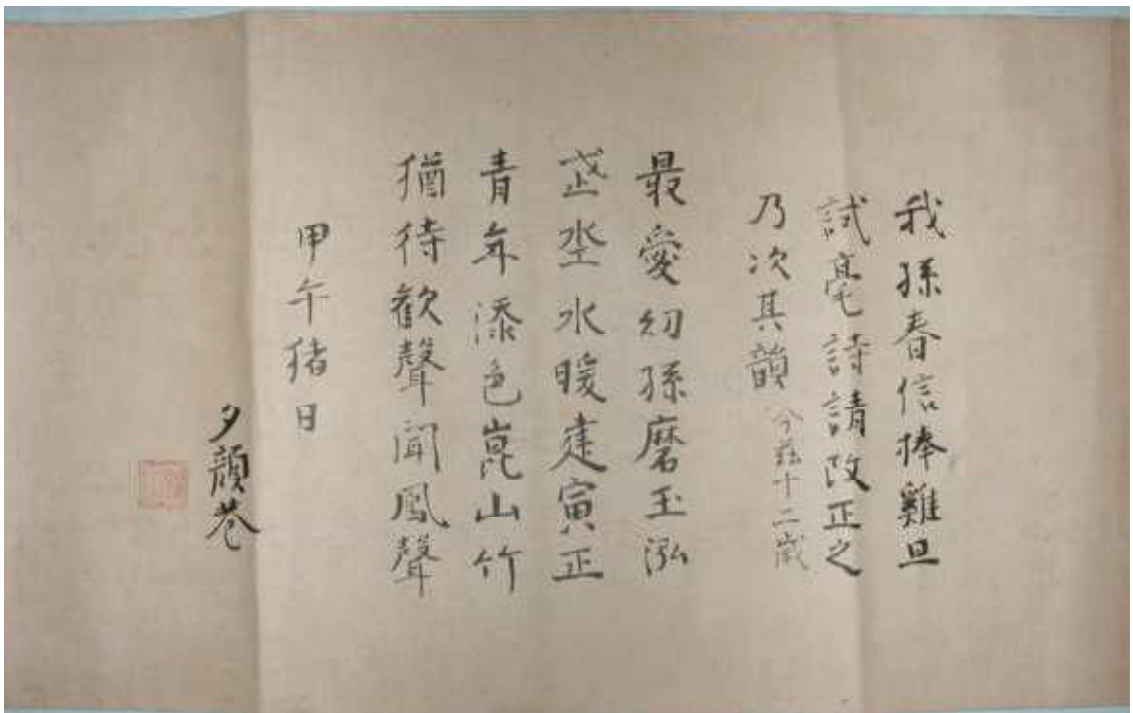 我孫春信捧雞旦
試毫詩請改正之
乃次其韻 今茲十二歳
最愛幼孫磨玉泓
水暖建寅正
青年添色山竹
猶待歓聲聞鳳聲
甲午猪日
夕顔巷